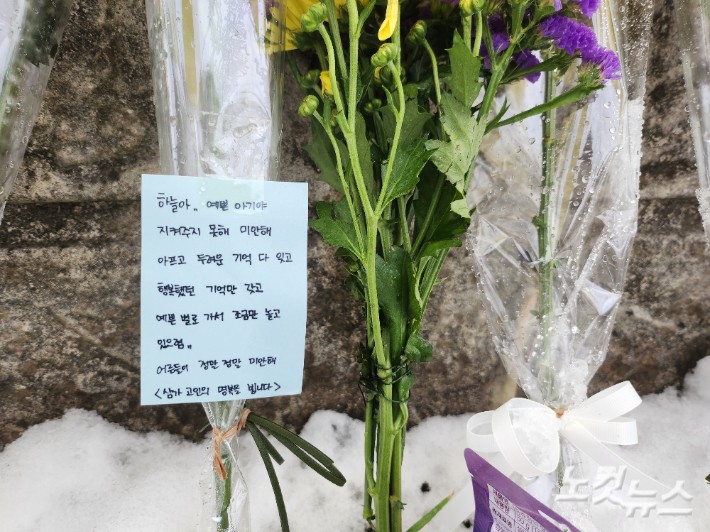 하늘아,, 예쁜 아기야
지켜주지 못해 미안해
아프고 두려운 기억 다 잊고
행복했던 기억만 갖고
예쁜 별로 가서 조금만 놀고
있으렴,,
어른들이 정말 정말 미안해
<삼가 고인의 명복을 빕니다>
노컷뉴스